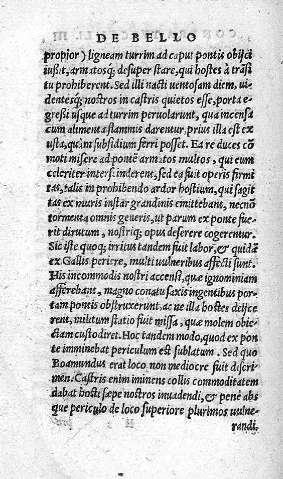 DE BELLO
propior) ligneam turrim ad caput pontis obijci
iußit, armatosq; desuper stare, qui hostes à trãsi
tu prohiberent. Sed illi nacti uentosam diem, ui-
dentesq; nostros in castris quietos esse, porta e-
greßi usque ad turrim peruolarunt, quæ incensa
cum alimenta flammis darentur, prius illa est ex
usta, quàm subsidium ferri posset. Ea re duces cõ
moti misere ad pontẽ armatos multos, qui eum
celeriter interscinderent, sed ea fuit operis firmi
tas, talis in prohibendo ardor hostium, qui sagit
tas ex muris instar grandinis emittebant, necnõ
tormenta omnis generis, ut parum ex ponte fue-
rit dirutum, nostriq; opus deserere cogerentur.
Sic iste quoq; irritus tandem fuit labor, & quidã
ex Gallis periere, multi vulneribus affecti sunt.
His incommodis nostri accensi, quæ ignominiam
afferebant, magno conatu saxis ingentibus por-
tam pontis obstruxerunt, ac ne illa hostes deijce
rent, militum statio fuit missa, quæ molem obie-
ctam custodiret. Hoc tandem modo, quod ex pon
te imminebat periculum est sublatum. Sed quo
Boamundus erat loco non mediocre fuit discri-
men. Castris enim imminens collis commoditatem
dabat hosti sæpe nostros inuadendi, & penè abs
que periculo de loco superiore plurimos uulne-
randi.